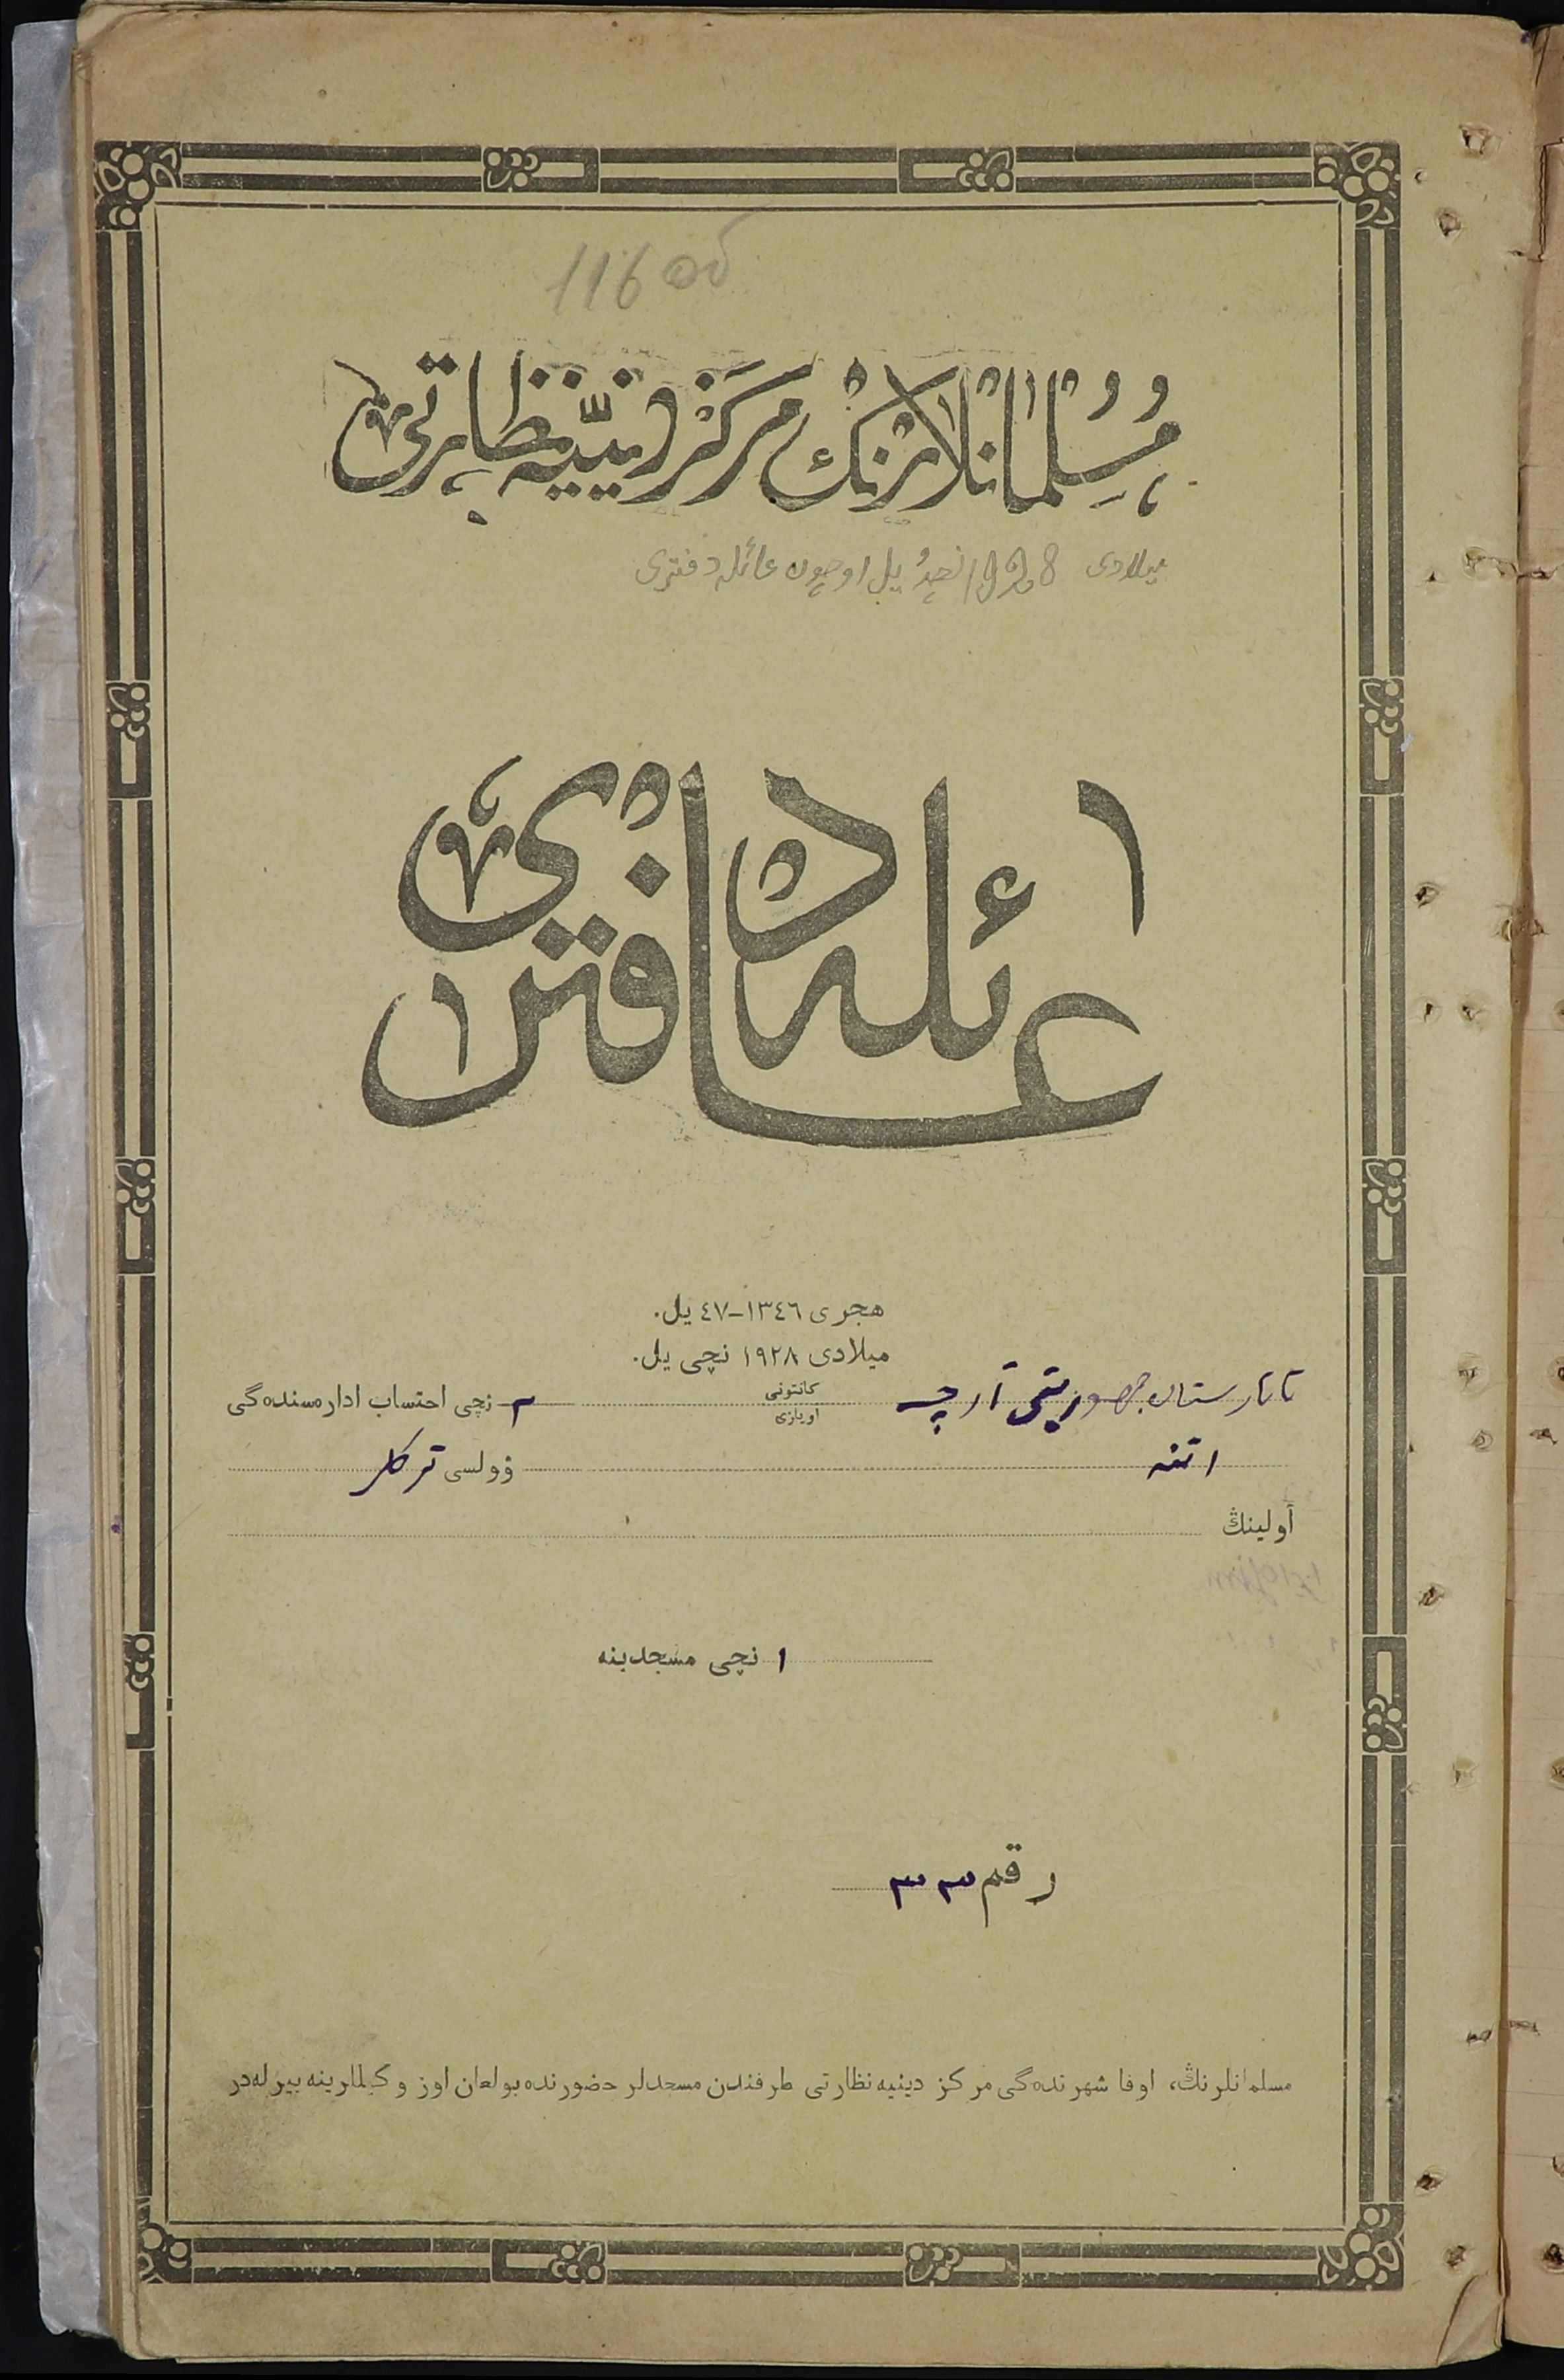 116
مسلمانلارنڭ مركز دينيّه نظارتى
ميلادى 1928 نچى يل اوچون عائله دفترى
عائله دفترى
هجرى ١٣٤٦–٤٧ يل.
ميلادى ١٩٢٨ نچى يل.
تاتارستان جمهوريتى آرچه كانتونى اويازى ٢ نچى احتساب ادارەسندەگى
اتنه ۋولسى تركلر
آولينڭ
١ نچى مسجدينه
رقم ٣٣
مسلمانلرنڭ، اوفا شهرندەگى مركز دينيه نظارتى طرفندن مسجدلر حضورنده بولغان اوز وكيللرينه بيرلەدر